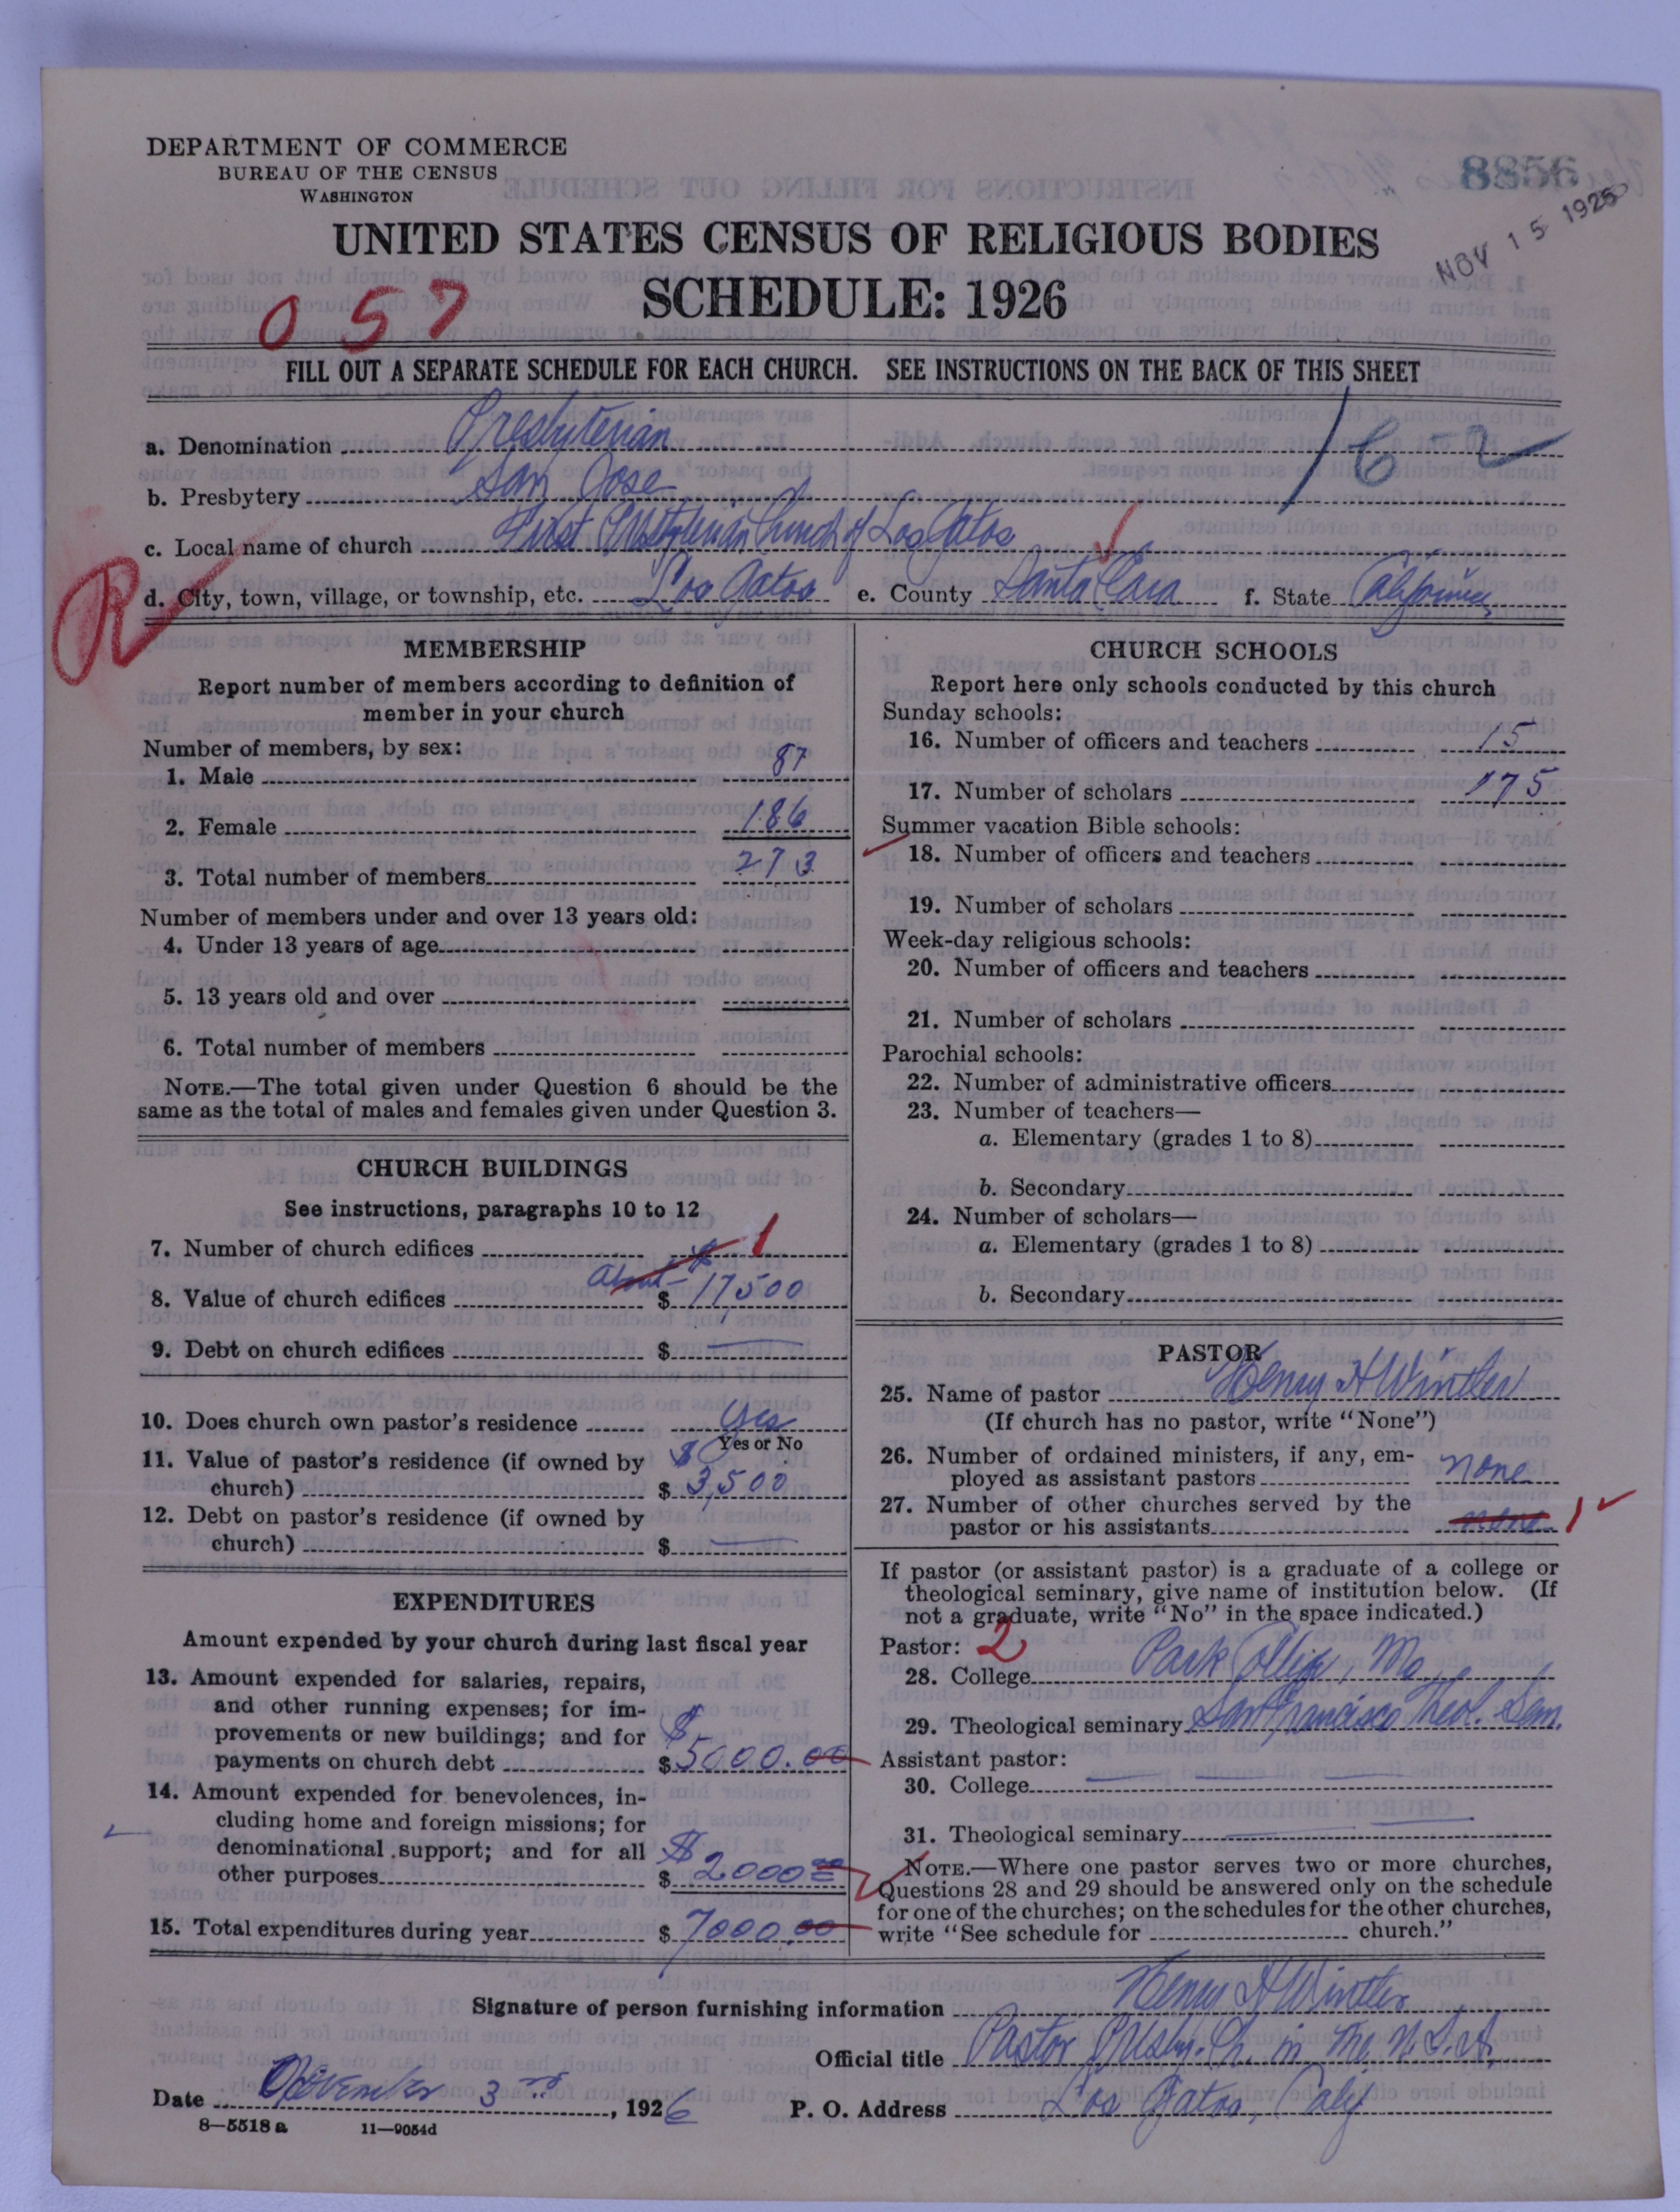 DEPARTMENT OF COMMERCE
BUREAU OF THE CENSUS
WASHINGTON
8856
NOV 15 1926
UNITED STATES CENSUS OF RELIGIOUS BODIES
SCHEDULE: 1926
057
FILL OUT A SEPARATE SCHEDULE FOR EACH CHURCH. SEE INSTRUCTIONS ON THE BACK OF THIS SHEET
a. Denomination Presbyterian
b. Presbytery San Jose
c. Local name of church First Presbyterian Church of Los Gatos
R
d. City, town, village, or township, etc. Los Gatos e. County Santa Clara f. State California
MEMBERSHIP
Report number of members according to definition of
member in your church
Number of members, by sex:
1. Male 87
2. Female 186
3. Total number of members 273
Number of members under and over 13 years old:
4. Under 13 years of age
5. 13 years old and over
6. Total number of members
NOTE.—The total given under Question 6 should be the
same as the total of males and females given under Question 3.
CHURCH BUILDINGS
See instructions, paragraphs 10 to 12
7. Number of church edifices 1
8. Value of church edifices about $ 17500
9. Debt on church edifices $ —
10. Does church own pastor's residence Yes
Yes or No
11. Value of pastor's residence (if owned by
church) $ 3,500
12. Debt on pastor's residence (if owned by
church) $ —
EXPENDITURES
Amount expended by your church during last fiscal year
13. Amount expended for salaries, repairs,
and other running expenses; for im-
provements or new buildings; and for
payments on church debt $ 5000.00
14. Amount expended for benevolences, in-
cluding home and foreign missions; for
denominational support; and for all
other purposes $ 2000 00
15. Total expenditures during year $ 7000.00
CHURCH SCHOOLS
Report here only schools conducted by this church
Sunday schools:
16. Number of officers and teachers 15
17. Number of scholars 175
Summer vacation Bible schools:
18. Number of officers and teachers
19. Number of scholars
Week-day religious schools:
20. Number of officers and teachers
21. Number of scholars
Parochial schools:
22. Number of administrative officers
23. Number of teachers—
a. Elementary (grades 1 to 8)
b. Secondary
24. Number of scholars—
a. Elementary (grades 1 to 8)
b. Secondary
PASTOR
25. Name of pastor Henry H Wintler
(If church has no pastor, write "None")
26. Number of ordained ministers, if any, em-
ployed as assistant pastors none
27. Number of other churches served by the
pastor or his assistants none 1
If pastor (or assistant pastor) is a graduate of a college or
theological seminary, give name of institution below. (If
not a graduate, write "No" in the space indicated.)
Pastor: 2
28. College Park College, Mo.
29. Theological seminary San Francisco Theol. Sem.
Assistant pastor:
30. College
31. Theological seminary
NOTE.—Where one pastor serves two or more churches,
Questions 28 and 29 should be answered only on the schedule
for one of the churches; on the schedules for the other churches,
write "See schedule for church."
Signature of person furnishing information Henry H Wintler
Official title Pastor Presby. Ch. in the U.S.A.
Date November 3rd, 1926 P. O. Address Los Gatos, Calif
8—5518a 11—9054d